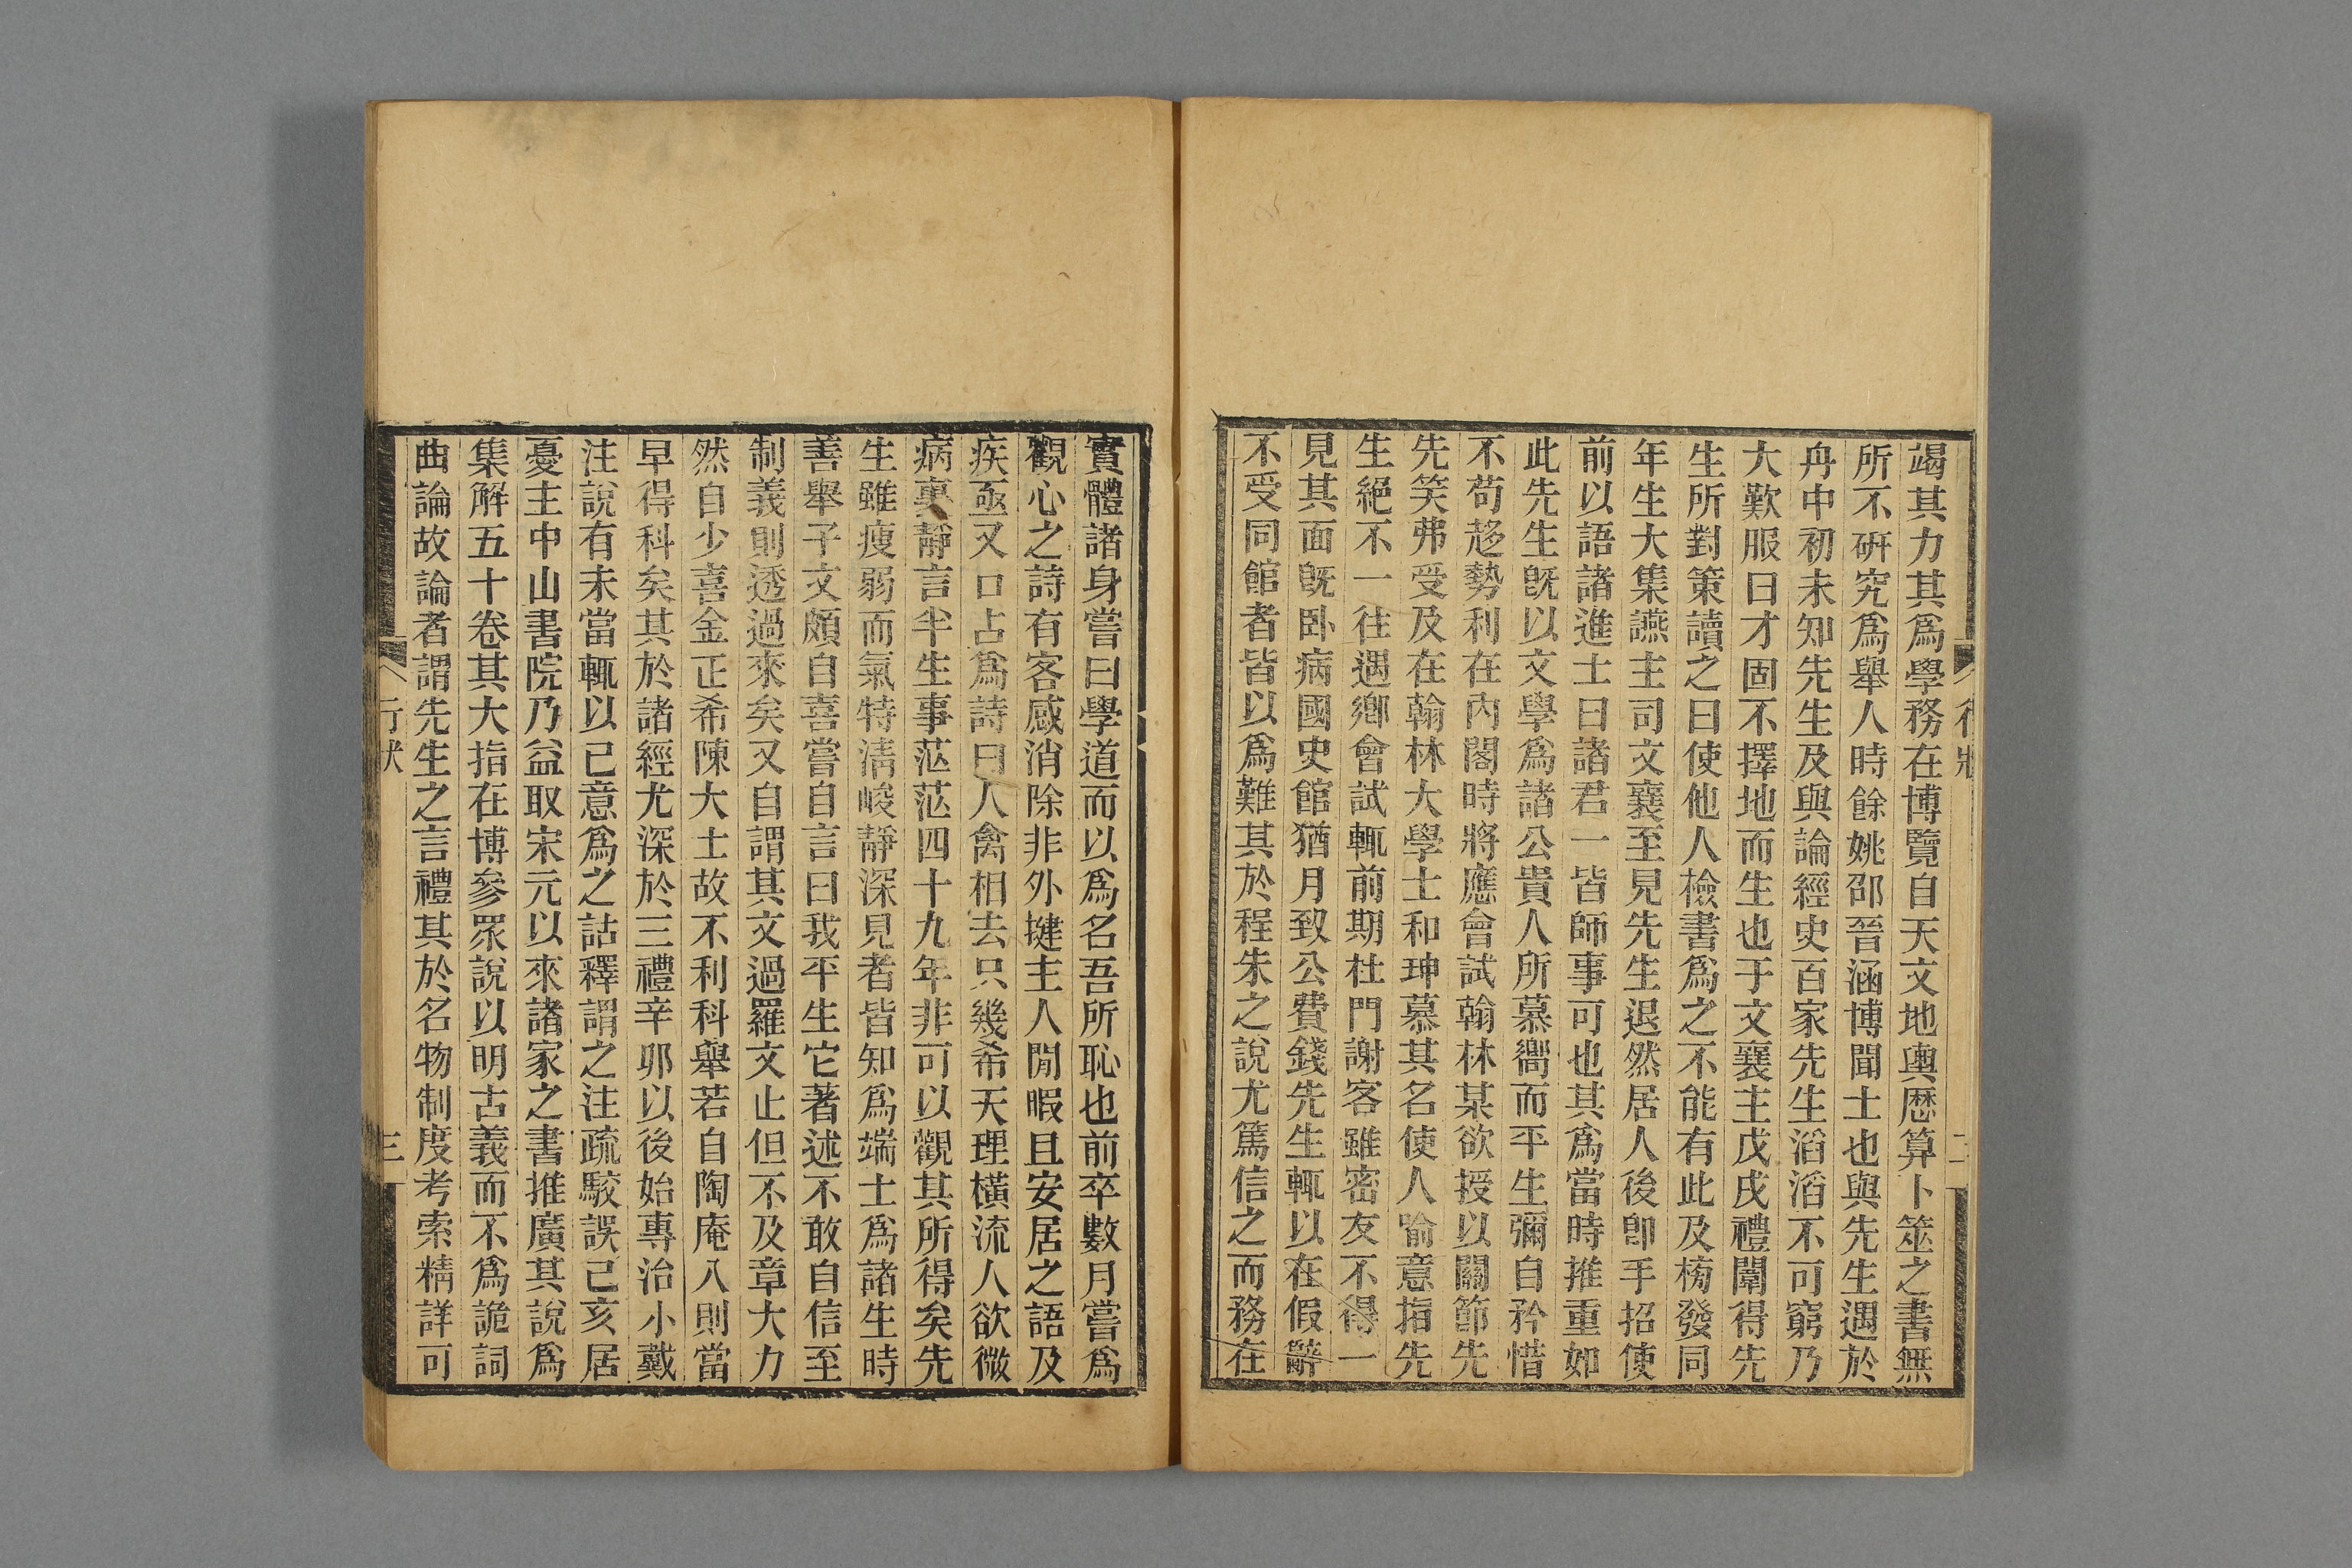 竭其力其爲學務在博覽自天文地輿厯算卜筮之書無
所不硏究爲舉人時餘姚邵晉涵博聞士也與先生遇於
舟中初未知先生及與論經史百家先生滔滔不可窮乃
大歎服曰才固不擇地而生也于文襄主戊戌禮闈得先
生所對策讀之曰使他人檢書爲之不能有此及榜發同
年生大集讌主司文襄至見先生退然居人後卽手招使
前以語諸進士曰諸君一皆師事可也其爲當時推重如
此先生旣以文學爲諸公貴人所慕嚮而平生彌自矜惜
不苟趍勢利在內閣時將應會試翰林某欲授以關節先
先笑弗受及在翰林大學士和珅慕其名使人喻意指先
生絕不一往遇鄉會試輒前期杜門謝客雖密友不得一
見其面旣臥病國史館猶月致公費錢先生輒以在假辭
不受同館者皆以爲難其於程朱之說尤篤信之而務在
行狀 二
實體諸身嘗曰學道而以爲名吾所恥也前卒數月嘗爲
觀心之詩有客感消除非外揵主人閒暇且安居之語及
疾亟又口占爲詩曰人禽相去只幾希天理橫流人欲微
病裏靜言半生事茫茫四十九年非可以觀其所得矣先
生雖瘦弱而氣特淸峻靜深見者皆知爲端士爲諸生時
善舉子文頗自喜嘗自言曰我平生它著述不敢自信至
制義則透過來矣又自謂其文過羅文止但不及章大力
然自少喜金正希陳大士故不利科舉若自陶庵入則當
早得科矣其於諸經尤深於三禮辛卯以後始專治小戴
注說有未當輒以己意爲之詁釋謂之注疏駮誤己亥居
憂主中山書院乃益取宋元以來諸家之書推廣其說爲
集解五十卷其大指在博參眾說以明古義而不爲詭詞
曲論故論者謂先生之言禮其於名物制度考索精詳可
行狀 三